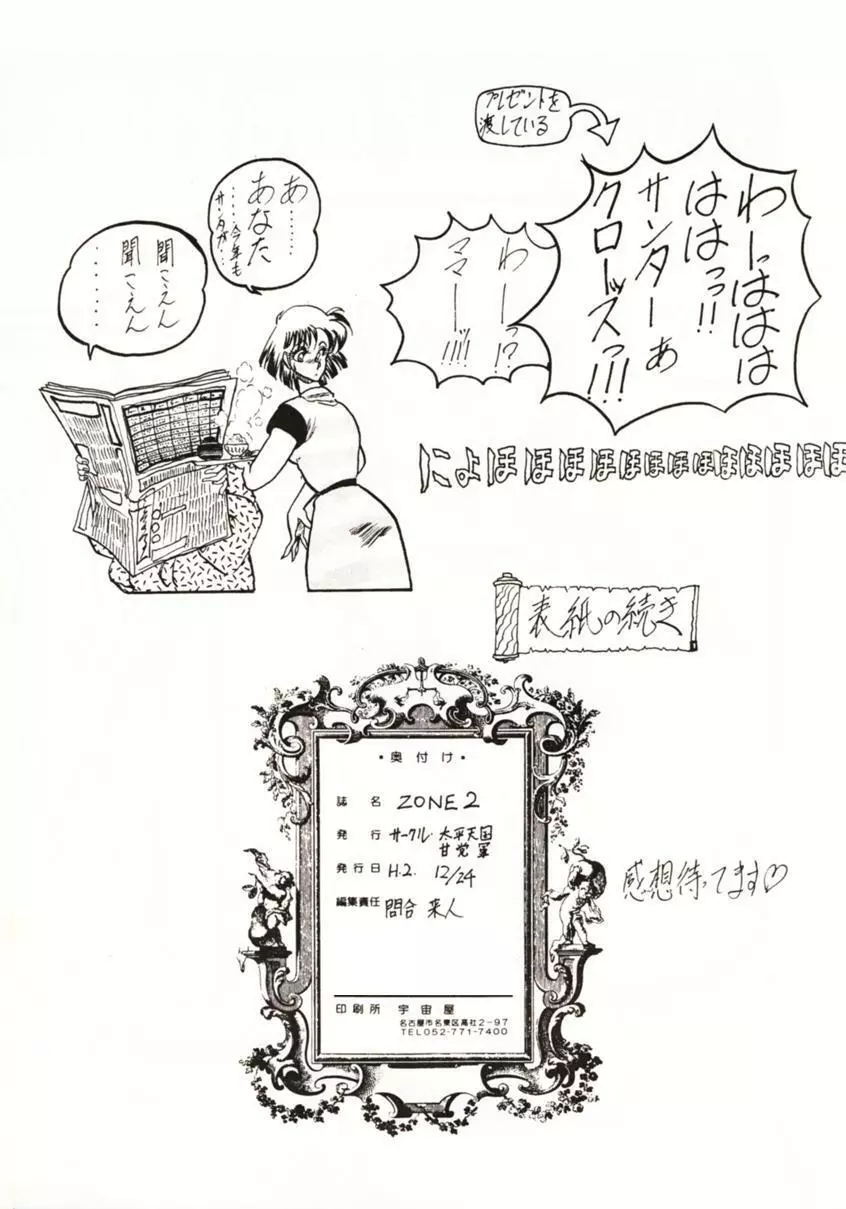 プレゼントを
渡している
わーっははは
ははっっ!!
サンターぁ
クロォーッスっ!!!
わーっ!?
ママーッ!!!!
あ……
あなた
……今年も
サンタが…
聞こえん
聞こえん
……
にょほほほほほほほほほほほほほ
表紙の続き
・奥付け・
誌名 ZONE2
発行 サークル・太平天国
甘党軍
発行日 H.2. 12/24
編集責任 問合 来人
印刷所 宇宙屋
名古屋市名東区高社2-97
TEL052-771-7400
感想待ってます♡